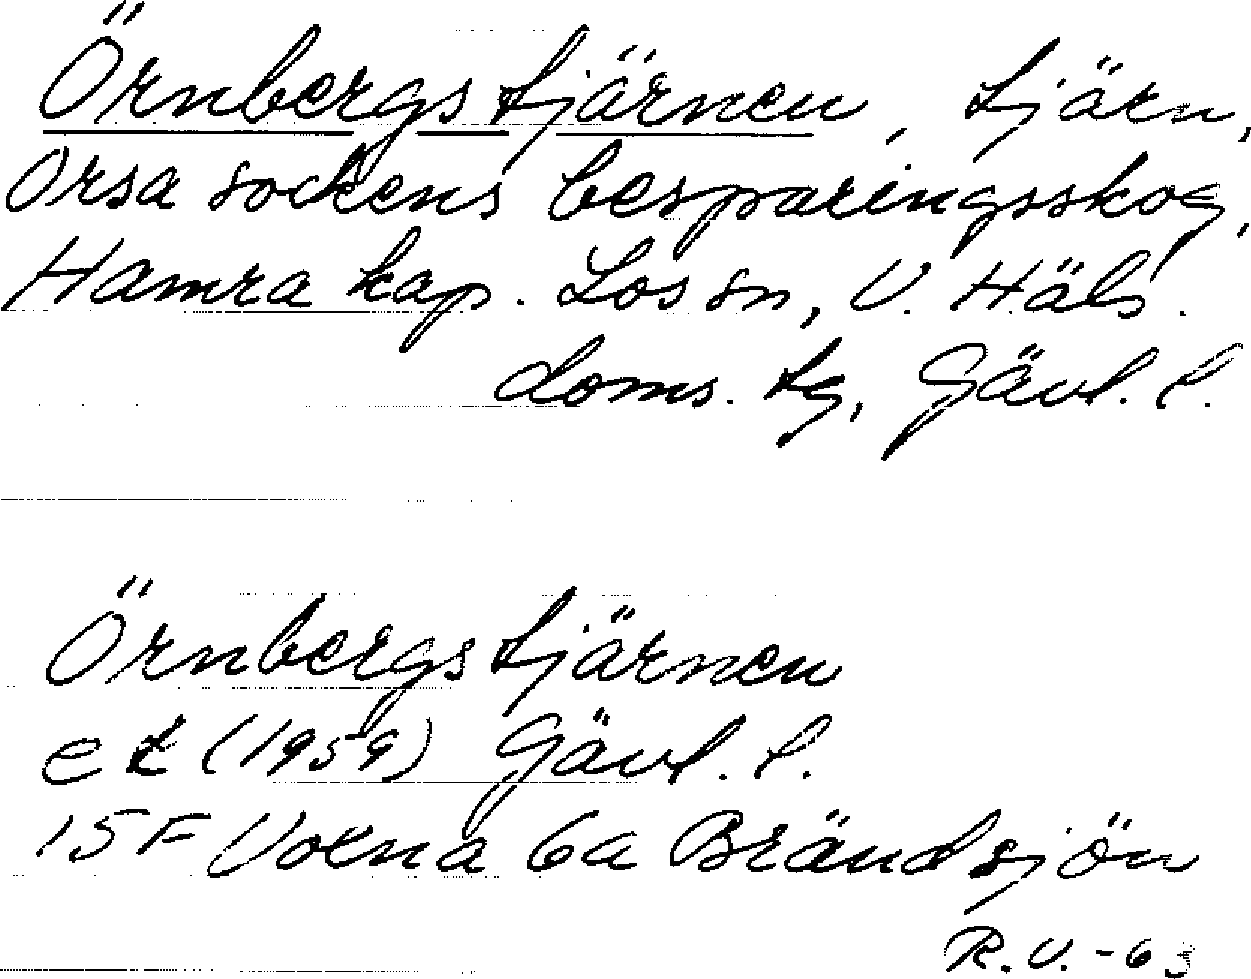 Örnbergstjärnen, tjärn,
Orsa sockens besparingsskog,
Hamra kap. Los sn, V. Häls.
doms. tg, Gävl. l.
Örnbergstjärnen
ek (1959) Gävl. l.
15F Voxna 6a Brändsjön
R.V. -63